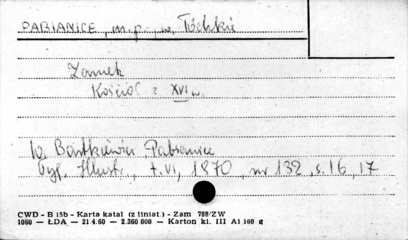 PABIANICE, m.p., w. Łódzkie
Zamek
Kościół z XVI w.
W. Bartkiewicz, Pabianice
Tyg. Illustr., t. VI, 1870, nr 132, s. 16, 17
CWD - B 15b - Karta katal (z liniat.) - Zam 788/ZW
1060 — ŁDA — 21.4.60 — 2.360.000 — Karton kl. III A1 160 g